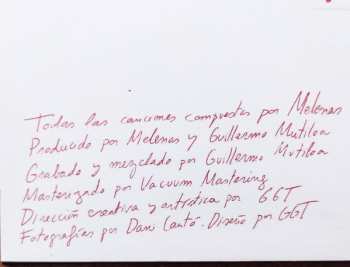 Todas las canciones compuestas por Melenas
Producido por Melenas y Guillermo Mutiloa
Grabado y mezclado por Guillermo Mutiloa
Masterizado por Vacuum Mastering
Dirección creativa y artística por GGT
Fotografías por Dani Cantó. Diseño por GGT